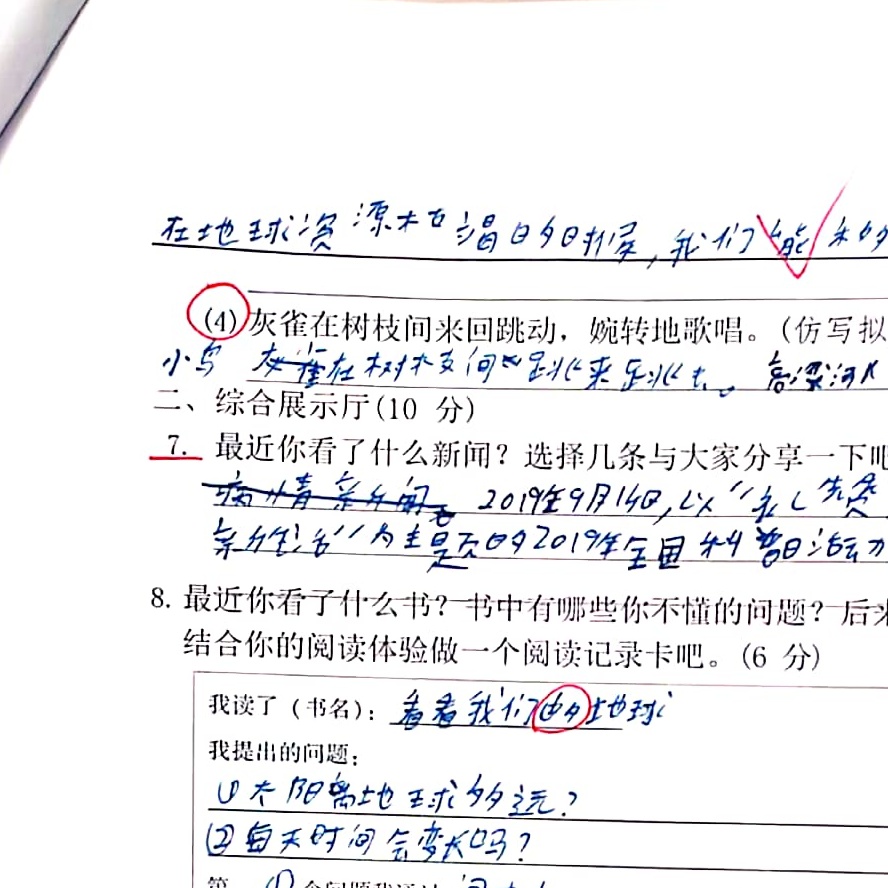 在地球资源枯竭的时候,我们能
(4)灰雀在树枝间来回跳动，婉转地歌唱。(仿写拟
小鸟 灰雀在树枝间跳来跳去。
二、综合展示厅(10 分)
7. 最近你看了什么新闻？选择几条与大家分享一下吧
病情新闻 2019年9月14日,以“礼赞
新生活”为主题的2019年全国科普日活动
8. 最近你看了什么书？书中有哪些你不懂的问题？后来
结合你的阅读体验做一个阅读记录卡吧。(6 分)
我读了（书名）：看看我们的地球
我提出的问题：
①太阳离地球多远?
②每天时间会变长吗?
第 ① 个问题我